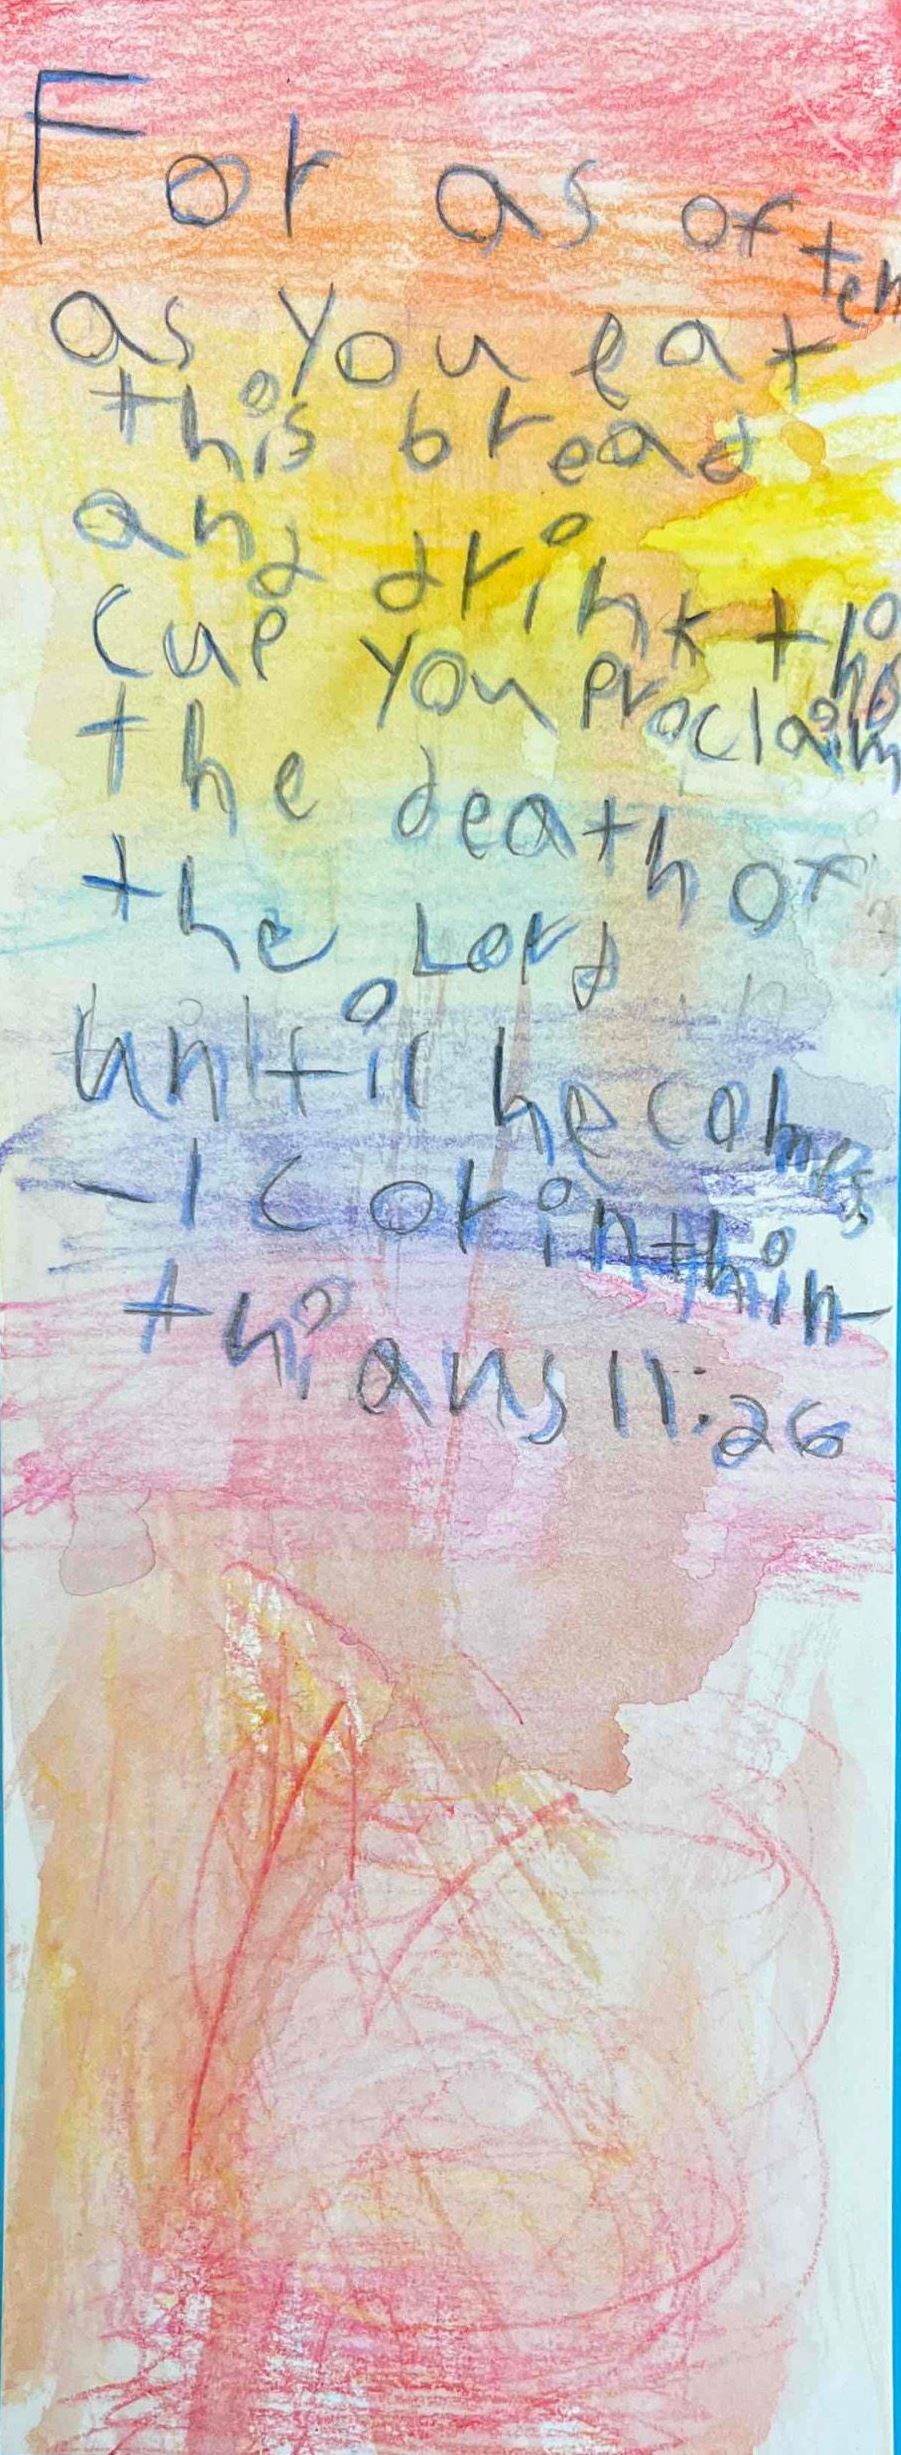 For as often
as you eat
this bread
and drink this
cup you proclaim
the death of
the Lord
until he comes
-1 Corinthin
thians 11:26